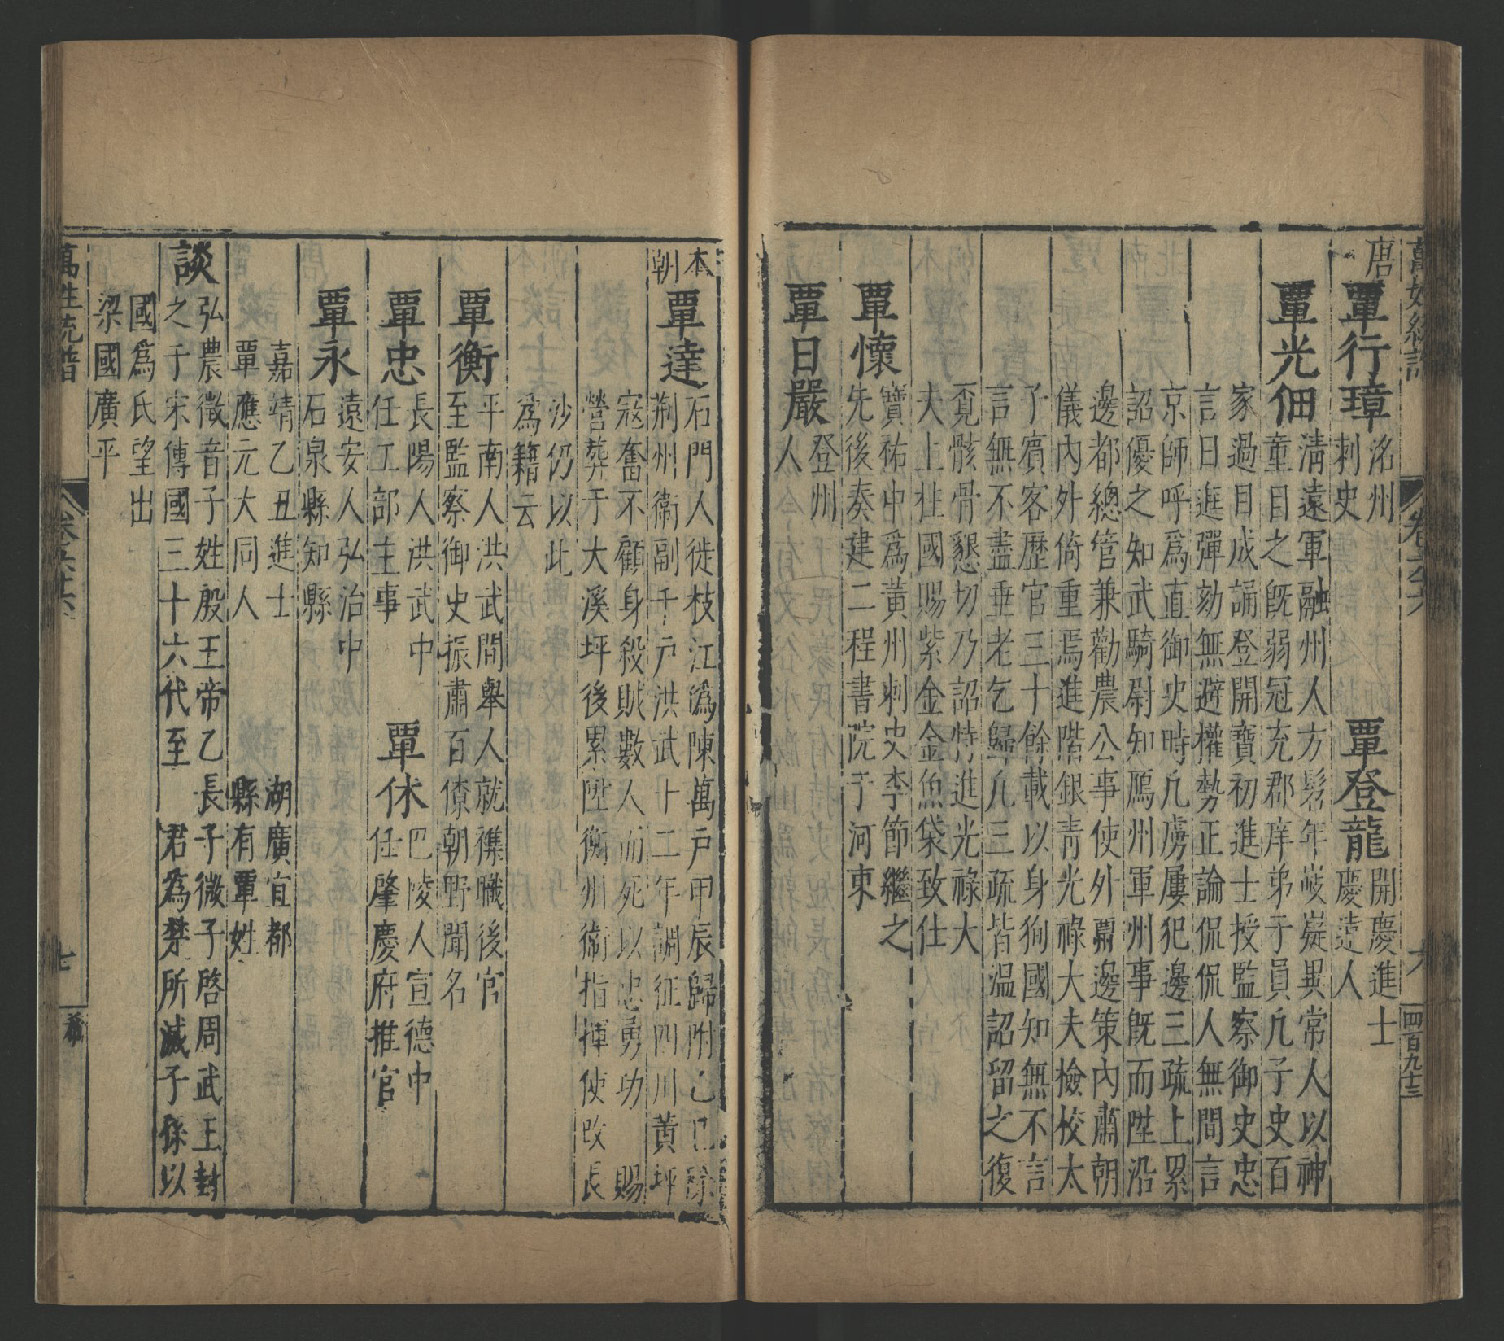 萬姓統譜 卷六十六 六 四百九十三
唐 覃行璋 洺州刺史 覃登龍 開慶進士慶遠人
覃光佃 清遠軍融州人方髫年岐嶷異常人以神
童目之既弱冠充郡庠弟子員凢子史百
家過目成誦登開寶初進士授監察御史忠
言日進彈劾無避權勢正論侃侃人無間言
京師呼爲直御史時凢虜屢犯邊三疏上累
詔優之知武騎尉知鴈州軍州事既而陞沿
邊都總管兼勸農公事使外覊邊策內肅朝
儀內外倚重焉進階銀青光祿大夫檢校太
子賔客歷官三十餘載以身狥國知無不言
言無不盡垂老乞歸凢三疏皆溫詔留之復
覔骸骨懇切乃詔特進光祿大
夫上柱國賜紫金金魚袋致仕
覃懷 寶祐中爲黄州刺史李節繼之
先後奏建二程書院于河東
覃日嚴 登州
人
本朝 覃達 石門人徙枝江僞陳萬戶甲辰歸附乙巳除
荆州衛副千戶洪武十二年調征四川黄坪
寇奮不顧身殺賊數人而死以忠勇功 賜
營葬于大溪坪後累陞衡州衛指揮使改長
沙仍以此
爲籍云
覃衡 平南人洪武間舉人就襍職後官
至監察御史振肅百僚朝野聞名
覃忠 長陽人洪武中
任工部主事 覃休 巴陵人宣德中
任肇慶府推官
覃永 遠安人弘治中
石泉縣知縣
嘉靖乙丑進士 湖廣宜都
覃應元大同人 縣有覃姓
談 弘農徵音子姓殷王帝乙長子微子啓周武王封
之于宋傳國三十六代至 君為楚所滅子孫以
國爲氏望出
梁國廣平
萬姓統譜 卷六十六 七